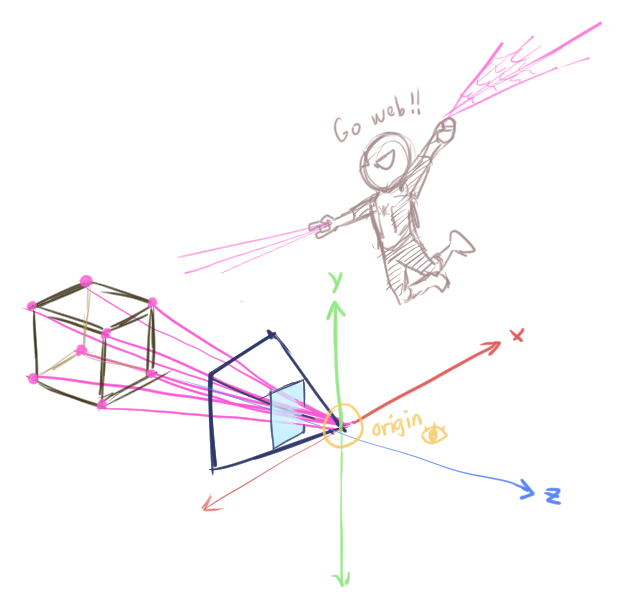 Go web!!
Y
X
origin
Z